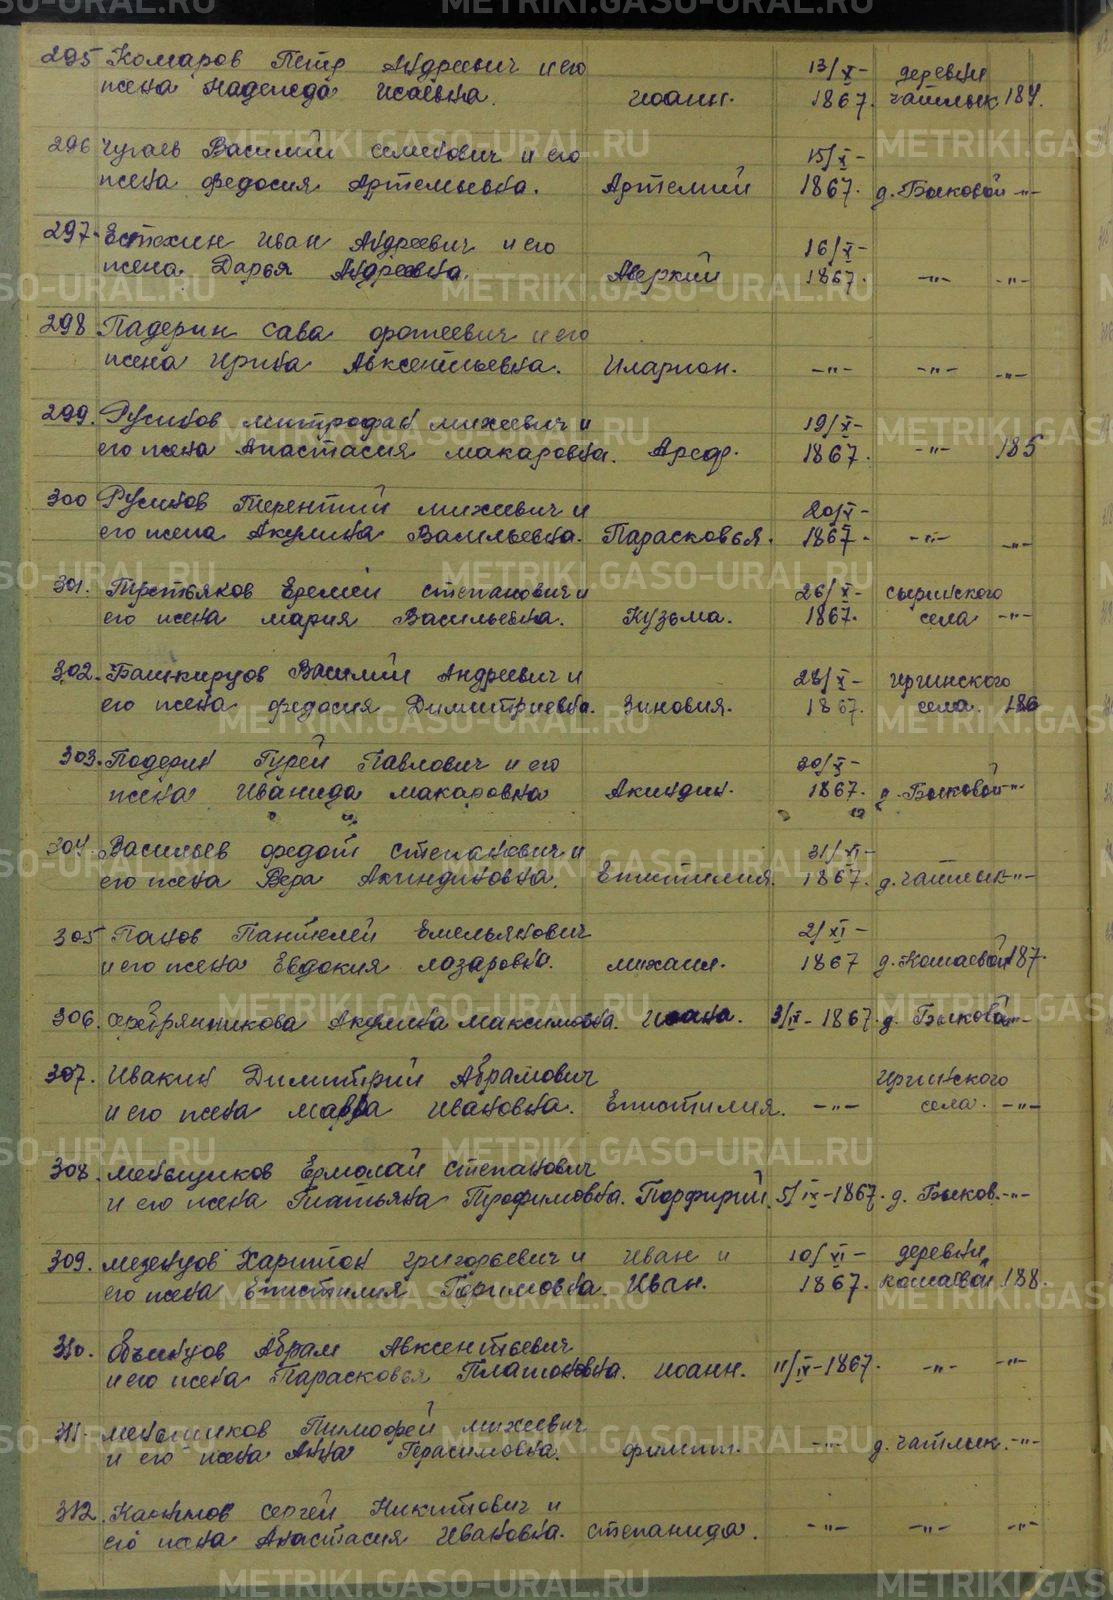 295 Комаров Петр Андреевич и его 13/X- деревни
жена Надежда Исаевна. Иоанн. 1867. Чатлык 184.
296 Чугаев Василий Семенович и его 15/X-
жена Федосия Артемьевна. Артемий 1867. д. Быковой -"-
297. Естехин Иван Андреевич и его 16/X-
жена Дарья Андреевна. Аверкий 1867. -"- -"-
298 Падерин Сава Фотеевич и его
жена Ирина Авксентьевна. Иларион. -"- -"- -"-
299. Русинов Митрофан Михеевич и 19/X-
его жена Анастасия Макаровна. Ареф. 1867. -"- 185
300 Русинов Терентий Михеевич и 20/X-
его жена Акулина Васильевна. Парасковья. 1867. -"- -"-
301. Третьяков Еремей Степанович и 26/X- Сыринского
его жена Мария Васильевна. Кузьма. 1867. села -"-
302. Башкирцов Василий Андреевич и 28/X- Иргинского
его жена Федосия Димитриевна. Зиновия. 1867. села. 186
303. Подерин Гурей Павлович и его 30/X-
жена Иванида Макаровна Акиндин. 1867. д. Быковой -"-
304. Васильев Федот Степанович и 31/XI-
его жена Вера Акиндиновна. Епистилия. 1867. д. Чатлык -"-
305 Панов Пантелей Емельянович 2/XI-
и его жена Евдокия Лазаровна. Михаил. 1867 д. Кошаевой 187.
306. Серебрянникова Акулина Максимовна. Иоана. 3/IX-1867. д. Быковой -"-
307. Ивакин Димитрий Абрамович Иргинского
и его жена Мавра Ивановна. Епистилия. -"- села. -"-
308. Мельщиков Ермолай Степанович
и его жена Татьяна Трофимовна. Порфирий. 5/IX-1867. д. Быков. -"-
309. Мезенцов Харитон Григорьевич и Иван и 10/XI- деревни
его жена Епистилия Горимовна. Иван. 1867. Кошаевой 188.
310. Объинцов Абрам Авксентьевич
и его жена Парасковья Платоновна. Иоанн. 11/IX-1867. -"- -"-
311. Мельников Тимофей Михеевич
и его жена Анна Герасимовна. Филипп. -"- д. Чатлык. -"-
312. Сергей Никитович и
его жена Анастасия Ивановна. Степанида. -"- -"- -"-